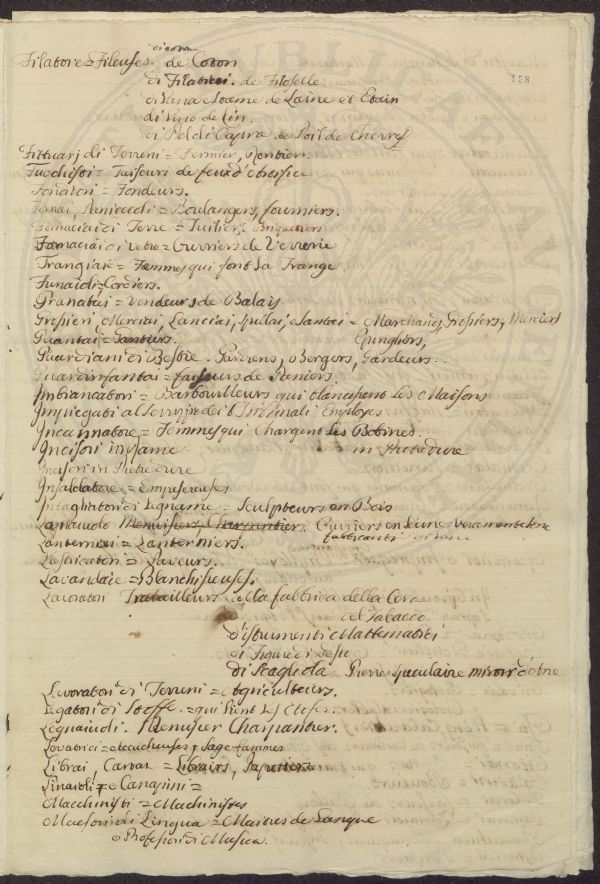 di cotone
Filatore = Fileuses. de Coton
158
di Filaticci. de Filoselle
di Lana e Stame de Laine et Etain
di Lino de Lin.
di Pel di Capra de Poil de Chevres
Fittuarj di Terreni = Fermier, Rentiers.
Fuochisti = Faiseurs de feux d'
Fonditori = Fondeurs.
Fornai, Panicocoli = Boulangers, fourniers.
Fornaciai di Terre = Tuiliers. Briquetiers
Fornaciai di vetro = Ouvriers de Verrerie
Frangiaie = Femmes qui font La Frange.
Funaioli = Cordiers.
Granatai = Vendeurs de Balais
Grossieri, Merciai, Lanciai, = Marchands, Grossiers, Merciers
Guantai = Gantiers. Epingliers,
Guardiani di Bestie. Gardiens, Bergers, Gardeurs.
Guardinfantai = faiseurs de Paniers.
Imbiancatori = Barbouilleurs qui blanchissent Les Maisons
Impiegati al Servizio dei Tribunali Employes
Incannatore = Femmes qui Chargent Les Bobines
Incisori in rame in Pietre dure
Incisori in Pietre dure
Insaldatore = Empeseuses
Intagliatori di Legname = Sculpteurs en Bois
Lanaiuolo Menuisiers, Charpentiers. Ouvriers en Laine veramente
fabbricanti
Lanternai = Lanterniers.
Lastricatori = Paveurs.
Lavandaie = Blanchisseuses.
Lavoratori Travailleurs alla fabbrica della Cera
del Tabacco
d'istrumenti Mattematici
di Figure di
di Scagliola Pierre speculaire miroir d'
Lavoratori di Terreni = Agriculteurs.
Legatori di Stoffe. = qui
Legnaiuoli. Menuisier Charpantier.
Levatrici = Accucheuses, Sage fammes
Librai, Cartai = Librairs, Papettiers.
Linaioli e Canapini =
Macchinisti = Machinistes
Maestri di Lingua = Maitres de Langue
e Professori di Musica.